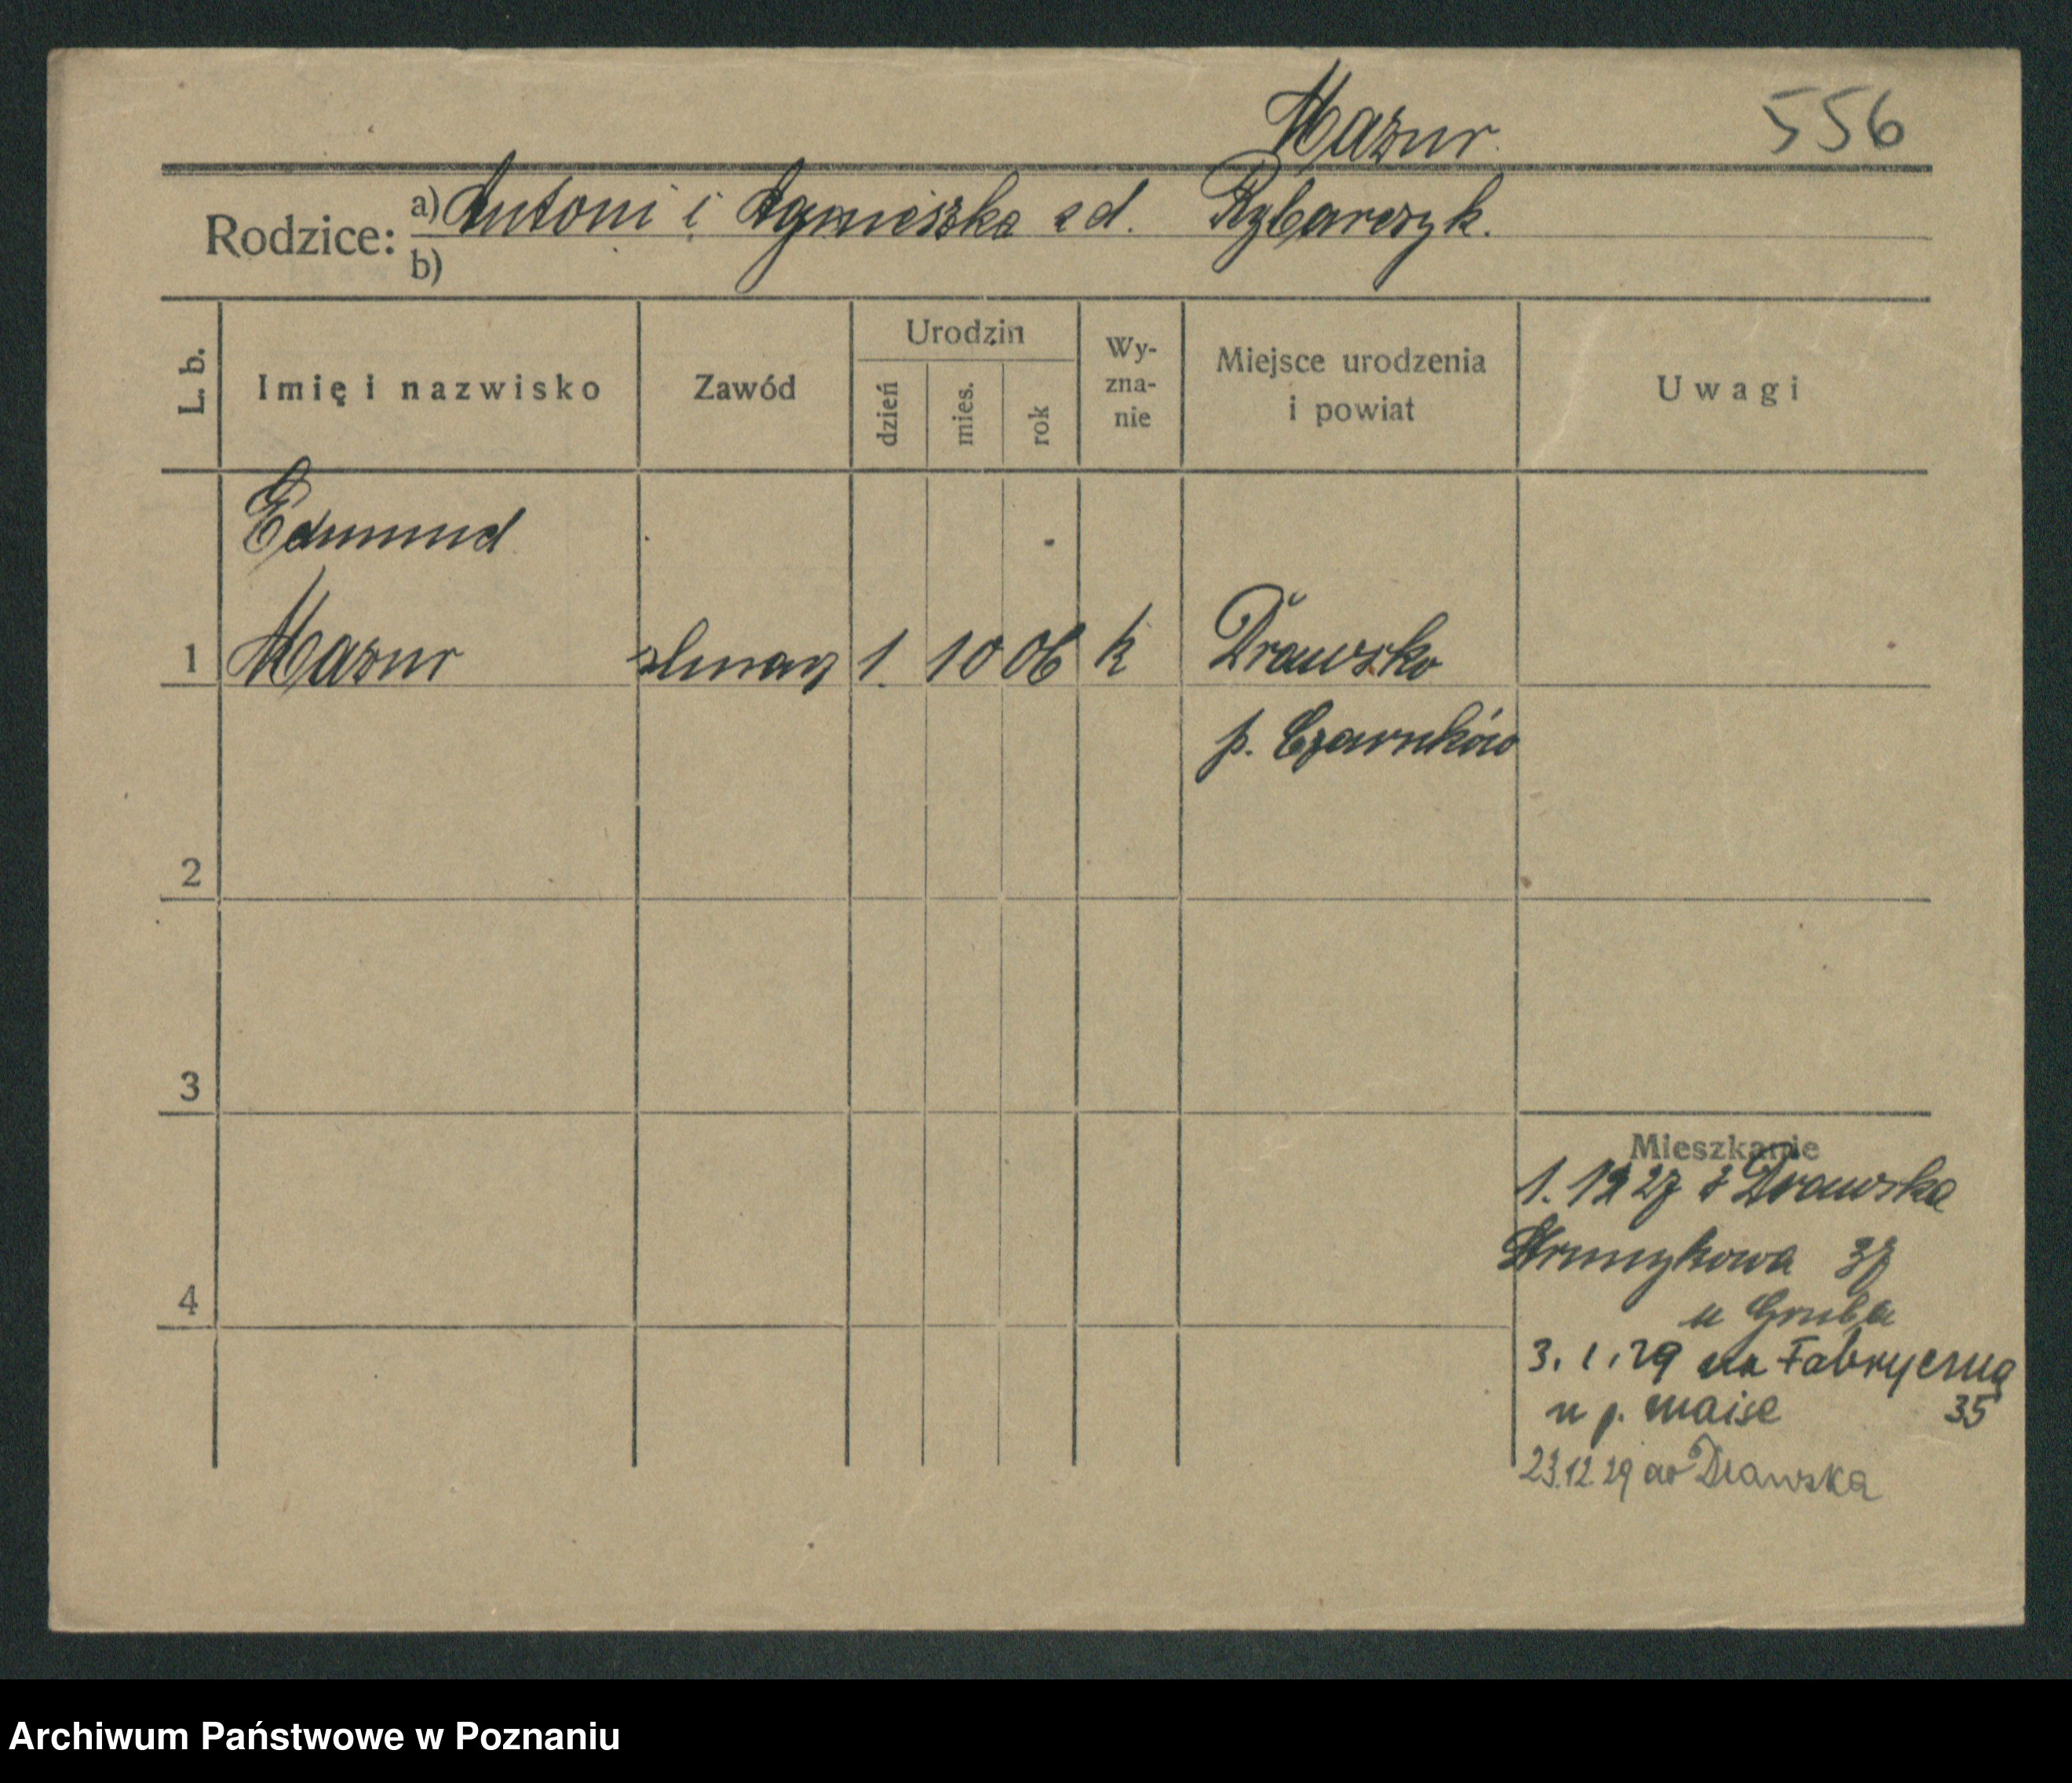 Mazur
556
Rodzice: a) Antoni i Agnieszka zd. Rybarczyk.
b)
L. b.
Imię i nazwisko
Zawód
Urodzin
dzień
mies.
rok
Wy-
zna-
nie
Miejsce urodzenia
i powiat
Uwagi
Edmund
1 Mazur 1. 10 06 k Drawsko
p. Czarnków
2
3
Mieszkanie
1. 12 27 z Drawska
Strumykowa 37
4
u Gruba
3. 1. 29 na Fabryczną
u p. 35
23.12.29 do Drawska
Archiwum Państwowe w Poznaniu